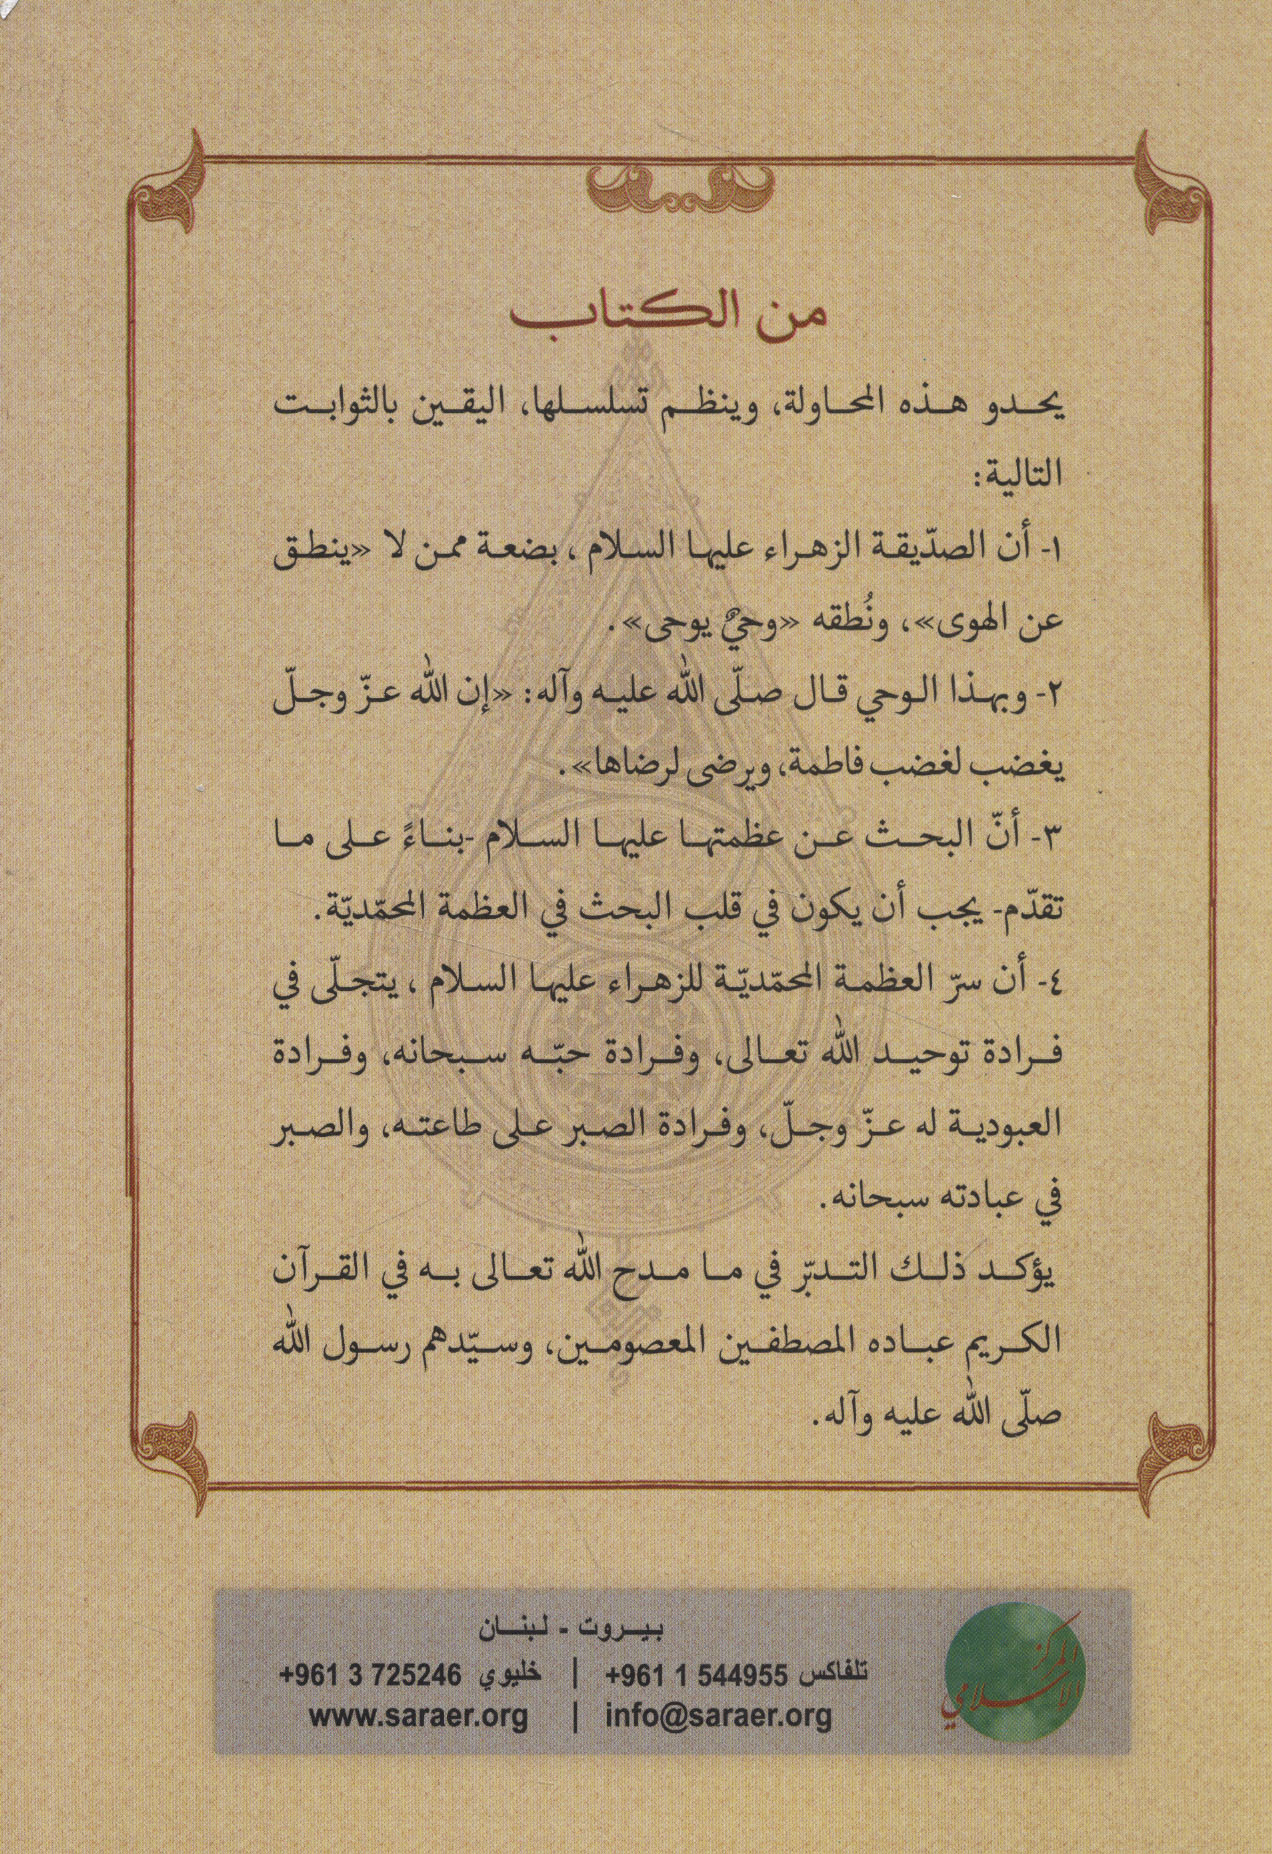 من الكتاب
يحدو هذه المحاولة، وينظم تسلسلها، اليقين بالثوابت
التالية:
١- أن الصدّيقة الزهراء عليها السلام ، بضعة ممن لا «ينطق
عن الهوى»، ونُطقه «وحيٌ يوحى».
٢- وبهذا الوحي قال صلّى الله عليه وآله: «إن الله عزّ وجلّ
يغضب لغضب فاطمة، ويرضى لرضاها».
٣- أنّ البحث عن عظمتها عليها السلام -بناءً على ما
تقدّم- يجب أن يكون في قلب البحث في العظمة المحمّديّة.
٤- أن سرّ العظمة المحمّديّة للزهراء عليها السلام ، يتجلّى في
فرادة توحيد الله تعالى، وفرادة حبّه سبحانه، وفرادة
العبودية له عزّ وجلّ، وفرادة الصبر على طاعته، والصبر
في عبادته سبحانه.
يؤكد ذلك التدبّر في ما مدح الله تعالى به في القرآن
الكريم عباده المصطفين المعصومين، وسيّدهم رسول الله
صلّى الله عليه وآله.
المركز
الإسلامي
بيروت - لبنان
تلفاكس +961 1 544955 | خليوي +961 3 725246
info@saraer.org | www.saraer.org